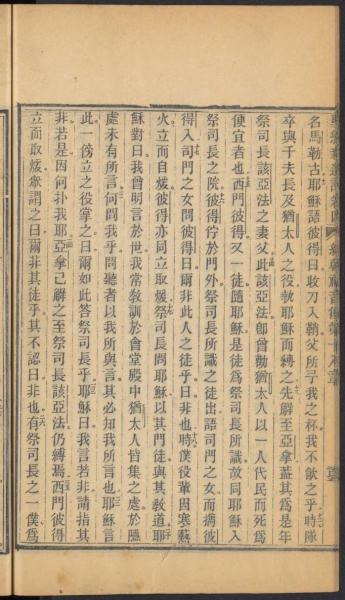 名馬勒古耶穌語彼得曰收刀入鞘父所予我之杯我不飲之乎時隊
卒與千夫長及猶太人之役執耶穌而縛之先解至亞拿蓋其為是年
祭司長該亞法之妻父此該亞法卽曾勸猶太人以一人代民而死為
便宜者也西門彼得又一徒隨耶穌是徒為祭司長所識故同耶穌入
祭司長之院彼得佇於門外祭司長所識之徒出語司門之女而攜彼
得入司門之女問彼得曰爾非此人之徒乎曰非也時僕役輩因寒爇
火立而自煖彼得亦同立取煖祭司長問耶穌以其門徒與其敎道耶
穌對曰我曾明言於世我常敎訓於會堂殿中猶太人皆集之處於隱
處未有所言何問我乎問聽者以我所與言其必知我所言也耶穌言
此一傍立之役掌之曰爾如此答祭司長乎耶穌曰我言若非請指其
非若是因何扑我耶亞拿已解之至祭司長該亞法仍縛焉西門彼得
立而取煖衆謂之曰爾非其徒乎其不認曰非也有祭司長之一僕為